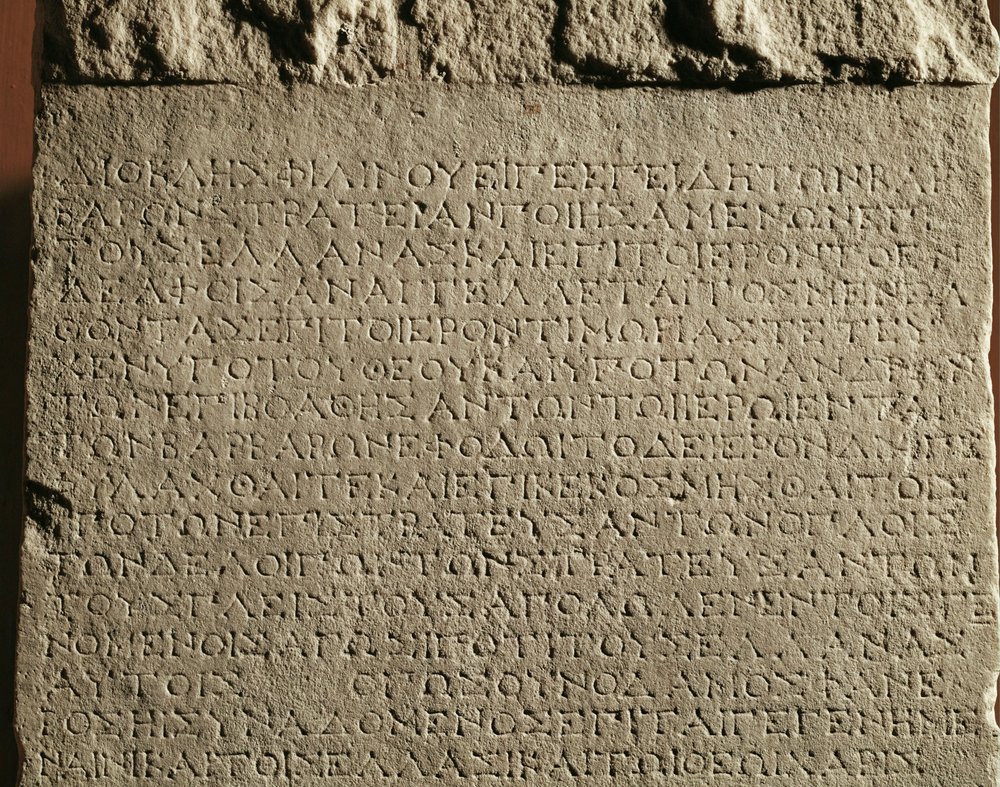 ΔΙΟΚΛΗΣΦΙΛΙΝΟΥΕΙΠΕΕΠΕΙΔΗΤΩΝΒΑΡ
ΒΑΡΩΝΣΤΡΑΤΕΙΑΝΠΟΙΗΣΑΜΕΝΩΝΕΠΙ
ΤΟΥΣΕΛΛΑΝΑΣΚΑΙΕΠΙΤΟΙΕΡΟΝΤΟΕΝ
ΔΕΛΦΟΙΣΑΝΑΓΓΕΛΛΕΤΑΙΤΟΣΜΕΝΕΛ
ΘΟΝΤΑΣΕΠΙΤΟΙΕΡΟΝΤΙΜΩΡΙΑΣΤΕΤΕΥ
ΧΕΝΥΠΟΤΟΥΘΕΟΥΚΑΙΥΠΟΤΩΝΑΝΔΡΩΝ
ΤΩΝΕΠΙΒΟΑΘΗΣΑΝΤΩΝΤΩΙΙΕΡΩΙΕΝΤΑΙ
ΤΩΝΒΑΡΒΑΡΩΝΕΦΟΔΩΙΤΟΔΕΙΕΡΟΝΔΙΑΠΕ
ΦΥΛΑΧΘΑΙΤΕΚΑΙΕΠΙΚΕΚΟΣΜΗΣΘΑΙΤΟΙΣ
ΥΠΟΤΩΝΕΠΙΣΤΡΑΤΕΥΣΑΝΤΩΝΟΠΛΟΙΣ
ΤΩΝΔΕΛΟΙΠΩΝΤΩΝΣΤΡΑΤΕΥΣΑΝΤΩΝ
ΤΟΥΣΠΛΕΙΣΤΟΥΣΑΠΟΛΩΛΕΝΑΙΕΝΤΟΙΣΓΕ
ΝΟΜΕΝΟΙΣΑΓΩΣΙΠΟΤΙΤΟΥΣΕΛΛΑΝΑΣ
ΑΥΤΟΙΣ ΟΠΩΣΟΥΝΟΔΑΜΟΣΦΑΝΕ
ΡΟΣΗΙΣΥΝΑΔΟΜΕΝΟΣΕΠΙΤΑΙΓΕΓΕΝΗΜΕ
ΝΑΙΝΙΚΑΙΤΟΙΣΕΛΛΑΣΙΚΑΙΤΩΙΘΕΩΙΧΑΡΙΣ